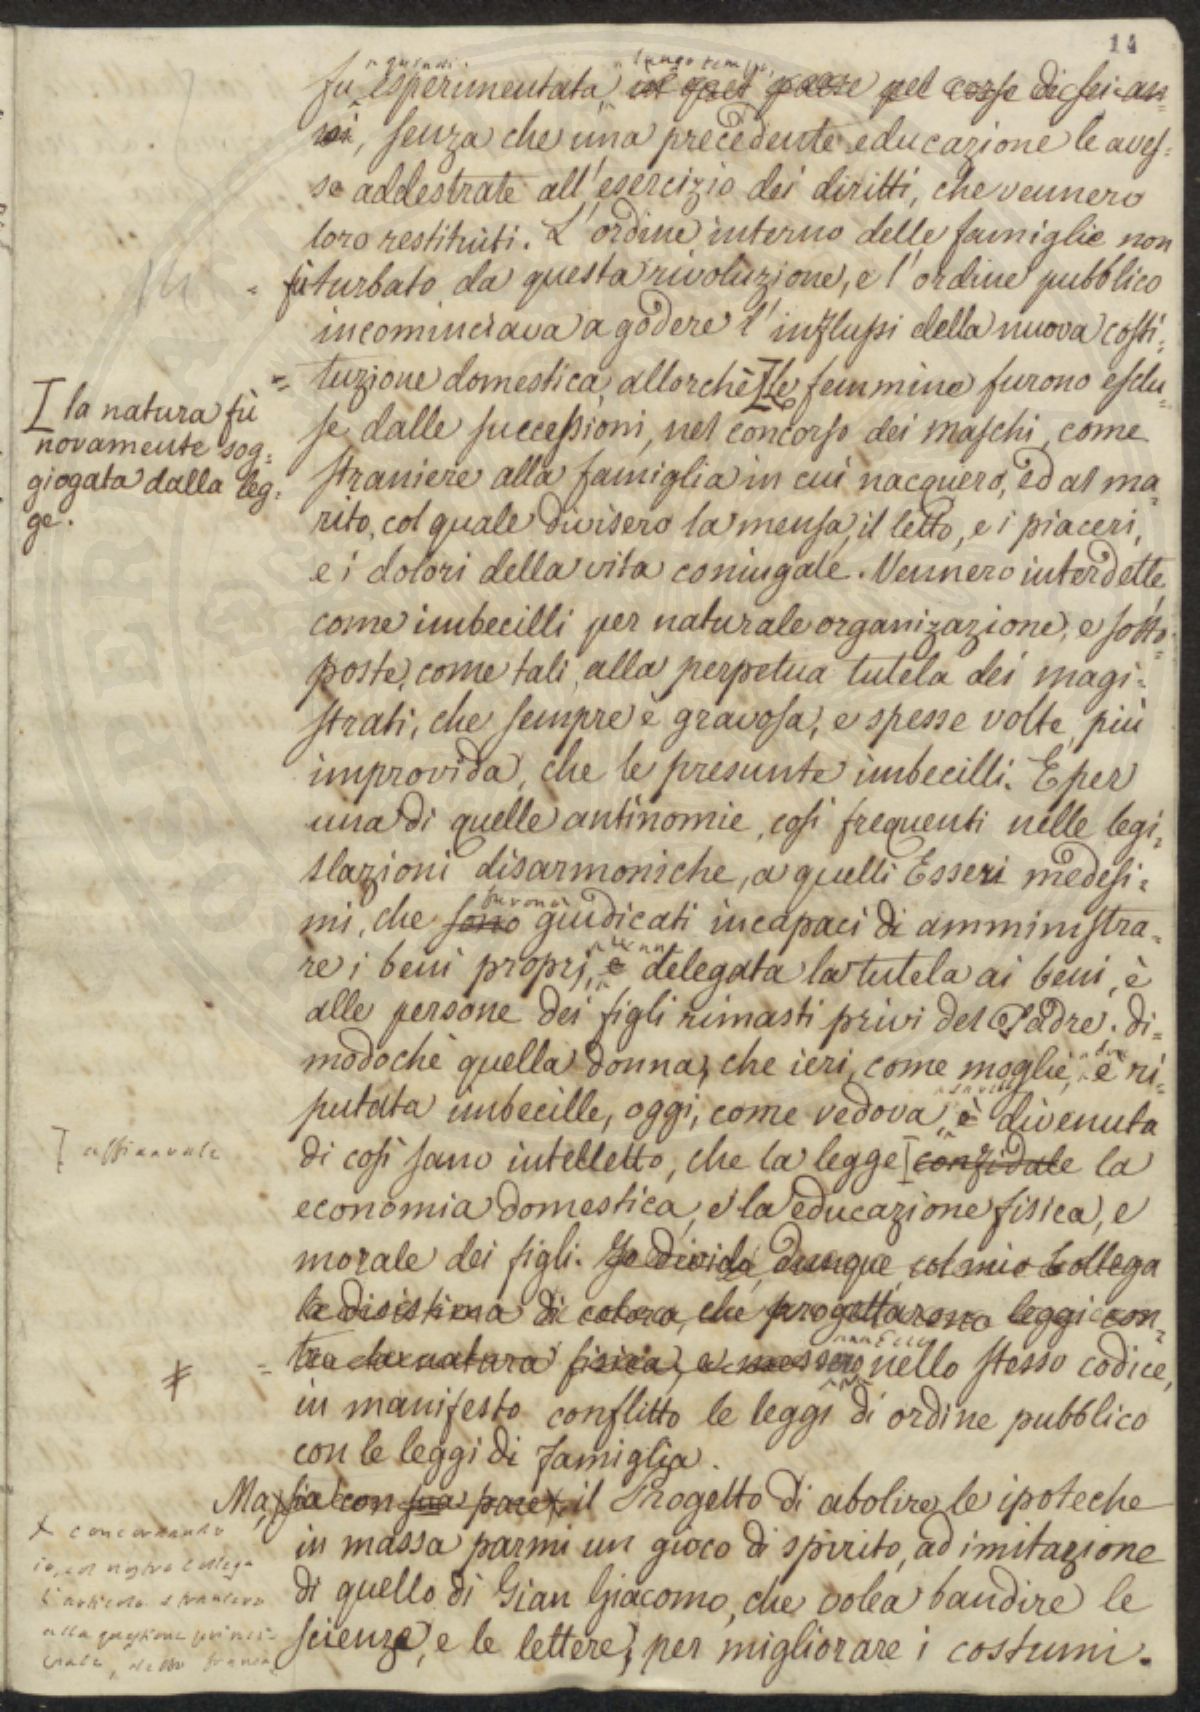 14
lungo tempo,
fu esperimentata, in quel paese pel corso di sei an=
ni, senza che una precedente educazione le aves=
se addestrate all'esercizio dei diritti, che vennero
loro restituiti. L'ordine interno delle famiglie non
fù turbato da questa rivoluzione, e l'ordine pubblico
incominciava a godere l'influssi della nuova costi=
tuzione domestica, allorchè [le femmine furono esclu=
[la natura fù
novamente sog=
giogata dalla leg=
ge.
se dalle successioni, nel concorso dei maschi, come
straniere alla famiglia in cui nacquero, ed al ma=
rito, col quale divisero la mensa, il letto, e i piaceri,
e i dolori della vita coniugale. Vennero interdette
come imbecilli per naturale organizazione, e sotto=
poste, come tali, alla perpetua tutela dei magi=
strati, che sempre è gravosa, e spesse volte più
improvida, che le presunte imbecilli. E per
una di quelle antinomie, così frequenti nelle legi=
slazioni disarmoniche, a quelli Esseri medesi=
furono
mi, che sono giudicati incapaci di amministra=
venne
re i beni proprj, è delegata la tutela ai beni, è
alle persone dei figli rimasti privi del Padre. Di=
modochè quella donna, che ieri, come moglie, è ri=
putata imbecille, oggi, come vedova, è divenuta
[affidavale
di così sano intelletto, che la legge [confidale la
economia domestica, e la educazione fisica, e
morale dei figli. Io divido dunque col mio Collega
la disistima di coloro, che progettarono leggi con=
tro la natura fisica, e messero nello stesso codice,
in manifesto conflitto le leggi di ordine pubblico
con le leggi di famiglia.
Ma, sia con sua pace, il Progetto di abolire le ipoteche
in massa parmi un gioco di spirito, ad imitazione
di quello di Gian Giacomo, che volea bandire le
scienze, e le lettere, per migliorare i costumi.
x concordando
io, col nostro Collega
l'articolo straniero
alla questione princi=
pale, dello